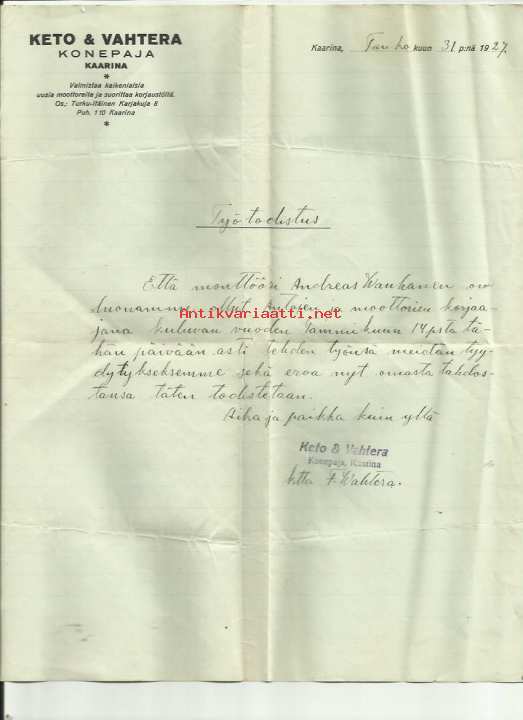 KETO & VAHTERA
KONEPAJA
KAARINA
*
Valmistaa kaikenlaisia
uusia moottoreita ja suorittaa korjaustöitä.
Os.: Turku-Itäinen Karjakuja 8
Puh. 110 Kaarina
*
Kaarina, kuun 31 p:nä 1927.
Työtodistus
Että monttööri Andreas Wanhanen on
luonamme ollut autojen ja moottorien korjaa-
jana kuluvan vuoden Tammikuun 14 psta tä-
hän päivään asti tehden työnsä meidän tyy-
dytykseksemme sekä eroa nyt omasta tahdos-
tansa täten todistetaan.
Aika ja paikka kuin yllä
Antikvariaatti.net
Keto & Vahtera
Konepaja, Kaarina
Wahtera.